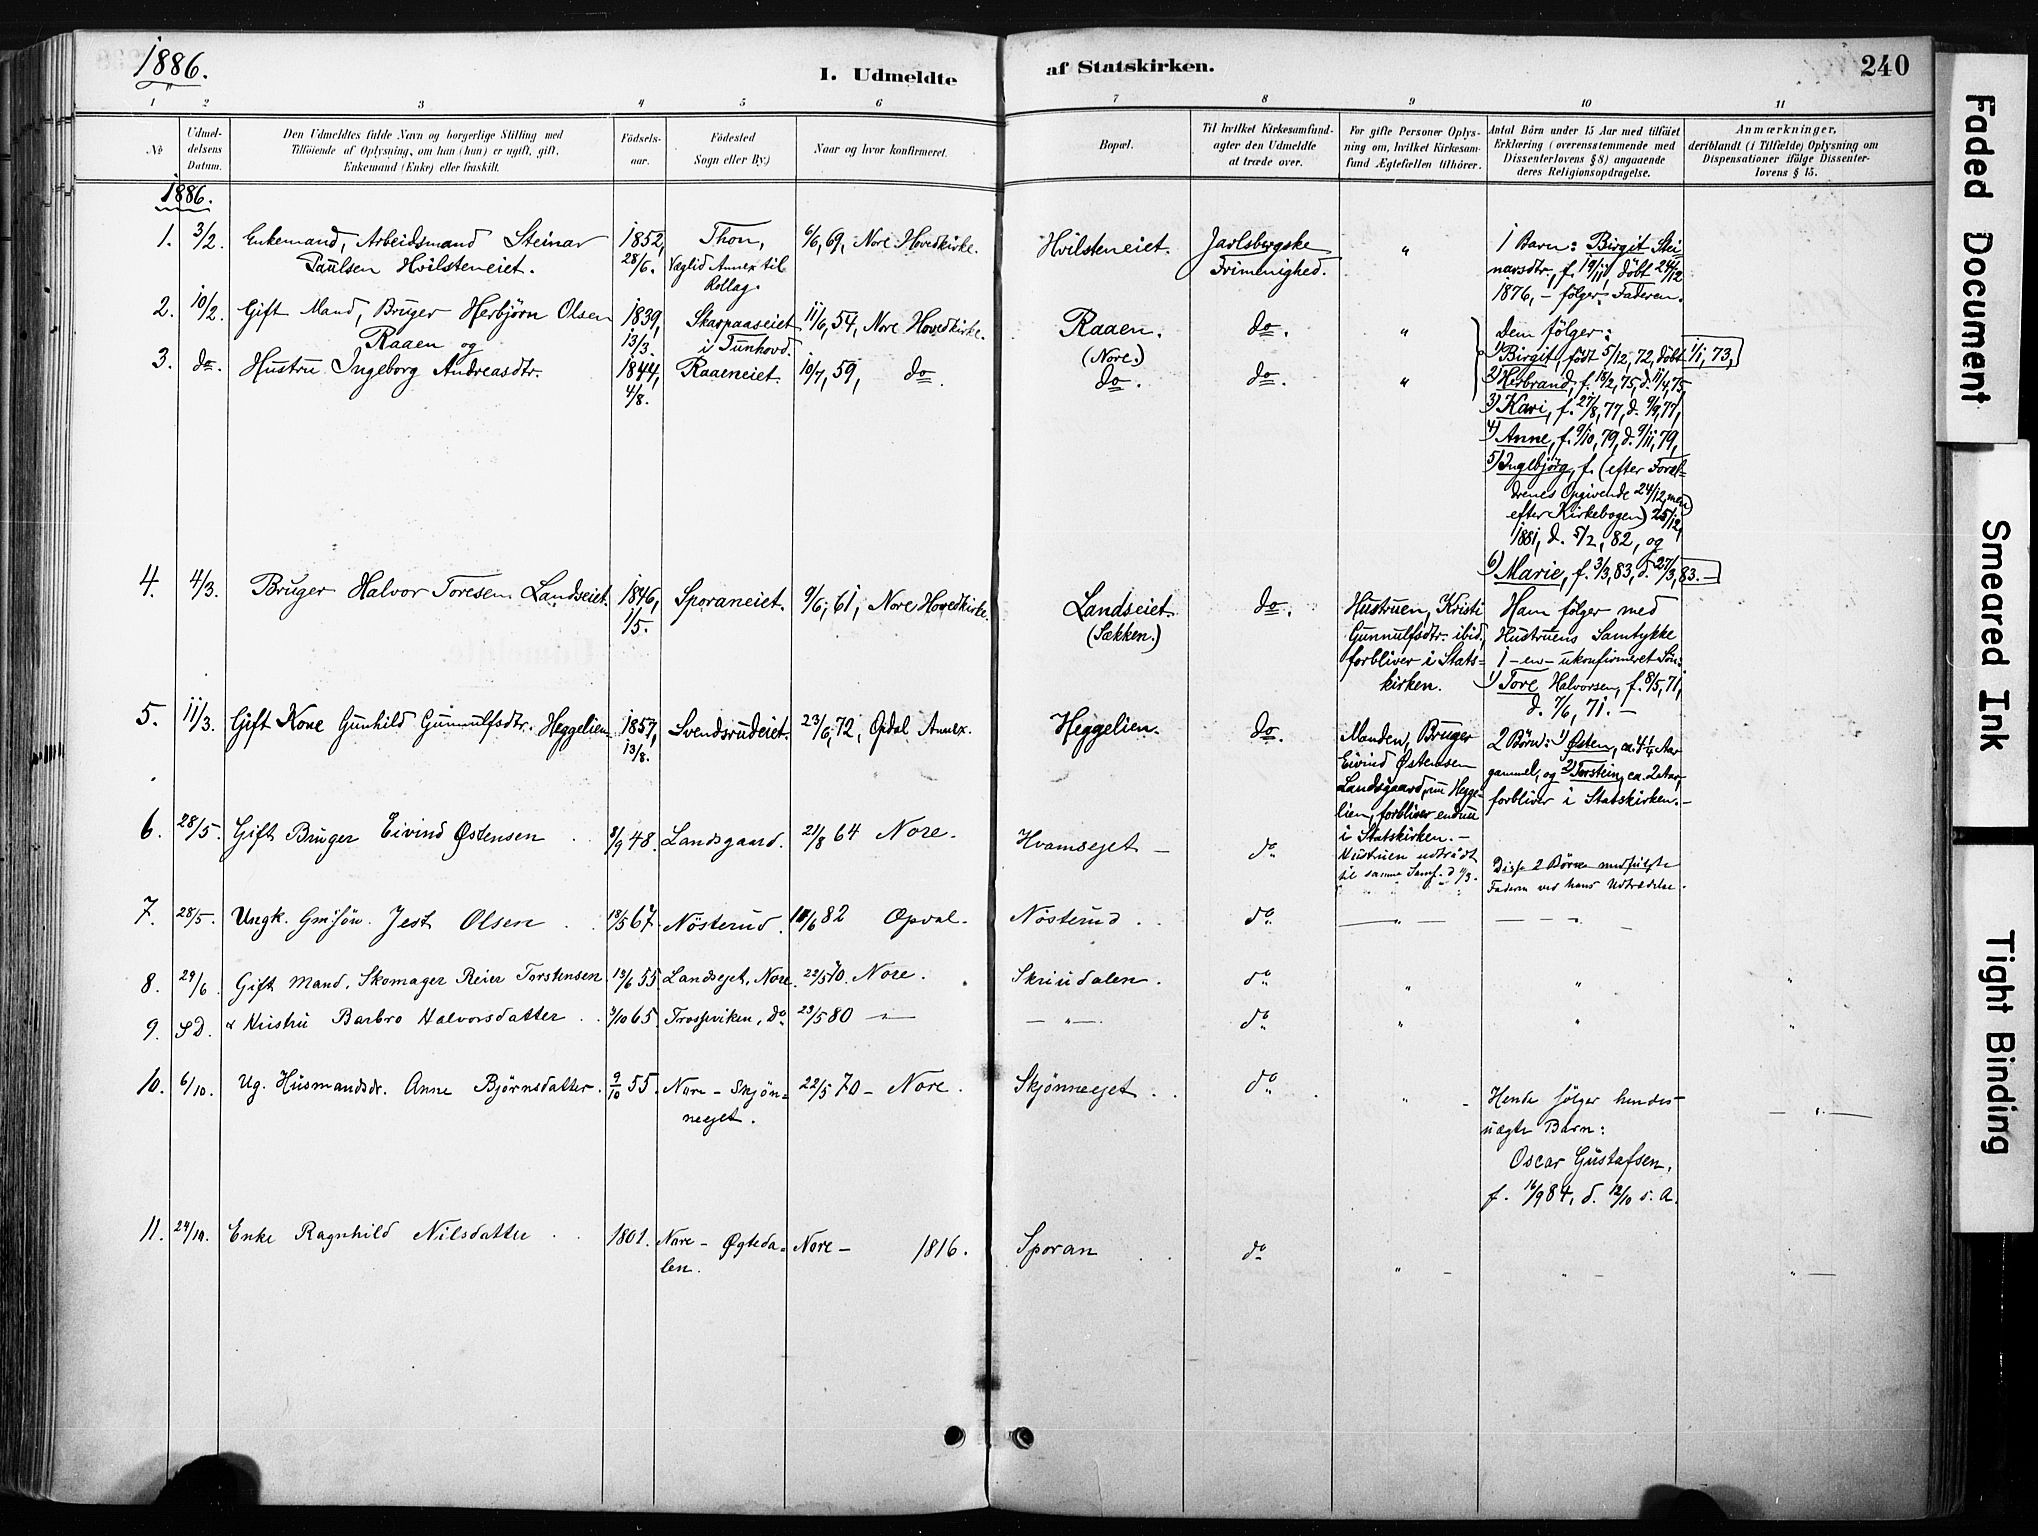 1886.
I. Udmeldte af Statskirken.
240
1 2 3 4 5 6 7 8 9 10 11
No
Udmel-
delsens
Datum.
Den Udmeldtes fulde Navn og borgerlige Stilling med
Tilføiende af Oplysning, om han (hun) er ugift, gift,
Enkemand (Enke) eller fraskilt.
Fødsels-
aar.
Fødested
Sogn eller By.)
Naar og hvor konfirmeret.
Bopæl.
Til hvilket Kirkesamfund-
agter den Udmeldte
at træde over.
For gifte Personer Oplys-
ning om, hvilket Kirkesam-
fund Ægtefællen tilhører.
Antal Børn under 15 Aar med tilføiet
Erklæring (overensstemmende med
Dissenterlovens § 8) angaaende
deres Religionsopdragelse.
Anmærkninger,
deriblandt (i Tilfælde) Oplysning om
Dispensationer ifølge Dissenter-
lovens § 15.
1886.
1. 3/2. Enkemand, Arbeidsmand Steinar
Paulsen Hvilsteneiet.
1852,
28/6.
Thon,
Væglid Annex til
Rollag.
6/6, 69, Nore Hovedkirke.
Hvilsteneiet.
Jarlsbergske
Frimenighed.
"
1 Barn: Birgit Stei-
narsdtr., f. 19/11, døbt 24/12
1876, – følger Faderen.
2. 10/2. Gift Mand, Bruger Herbjørn Olsen
Raaen og
1839,
13/3.
Skarpaaseiet
i Tunhovd.
11/6, 54, Nore Hovedkirke.
Raaen.
(Nore.)
do.
"
Dem følger:
1) Birgit, født 5/12, 72, døbt 1/1, 73,
3. do. Hustru Ingeborg Andreasdtr.
1844,
4/8.
Raaeneiet.
10/7, 59, do.
do.
do.
"
2) Herbrand, f. 18/2, 75, d. 11/4, 75,
3) Kari, f. 27/8, 77, d. 9/9, 77,
4) Anne, f. 9/10, 79, d. 9/11, 79,
5) Ingebjørg, f. (efter Foræl-
drenes Opgivende 24/12, men
efter Kirkebogen) 25/12,
1881, d. 5/2, 82, og
6) Marie, f. 3/3, 83, d. 27/3, 83. –
4. 4/3. Bruger Halvor Toresen Landseiet.
1846,
1/5.
Sporaneiet.
9/6, 61, Nore Hovedkirke.
Landseiet.
(Søkken.)
do.
Hustruen, Kristi
Gunnulfsdtr. ibid,
forbliver i Stats-
kirken.
Ham følger med
Hustruens Samtykke
1 – en – ukonfirmeret Søn:
1) Tore Halvorsen, f. 8/5, 71,
d. 7/6, 71. –
5. 11/3. Gift Kone Gunhild Gunnulfsdtr. Heggelien.
1857,
13/8.
Svendsrudeiet.
23/6, 72, Opdal Annex.
Heggelien.
do.
Manden, Bruger
Eivind Østensen
Landsgaard, nu Hegge-
lien, forbliver endnu
i Statskirken. –
2 Børn: 1) Østen, ca. 4 1/4 Aar
gammel, og 2) Torstein, ca. 2 Aar,
forbliver i Statskirken. –
6. 28/5. Gift Bruger Eivind Østensen
8/9 48.
Landsgaard.
21/8 64 Nore.
Hvamsejet –
do
Hustruen udtraadt
til samme Samf. d 11/3.
Disse 2 Børn medfulgte
Faderen ved hans Udtrædelse.
7. 28/5. Ungk. Gm:søn. Jest Olsen
18/5 67.
Nösterud.
18/6 82 Opdal.
Nösterud
do
8. 29/6. Gift Mand. Skomager Reier Torstensen.
13/6 55
Landsejet, Nore.
22/5 70. Nore.
Skriudalen.
do
9. S.D. & Hustru Barbro Halvorsdatter
3/10 65.
do
23/5 80 –"–
–"–
do
10. 6/10. Ug. Husmandsdr. Anne Bjørnsdatter.
9/10 55
Nore – Skjøn-
neejet.
22/5 70 – Nore.
Skjønneejet
do
Hende følger hendes
uægte Barn:
Oscar Gustafsen,
f. 16/9 84, d. 12/10 s. A.
11. 24/10. Enke Ragnhild Nilsdatter
1801.
Nore – Øgteda-
len.
Nore – 1816.
Sporan
do
Faded Document
Smeared Ink
Tight Binding